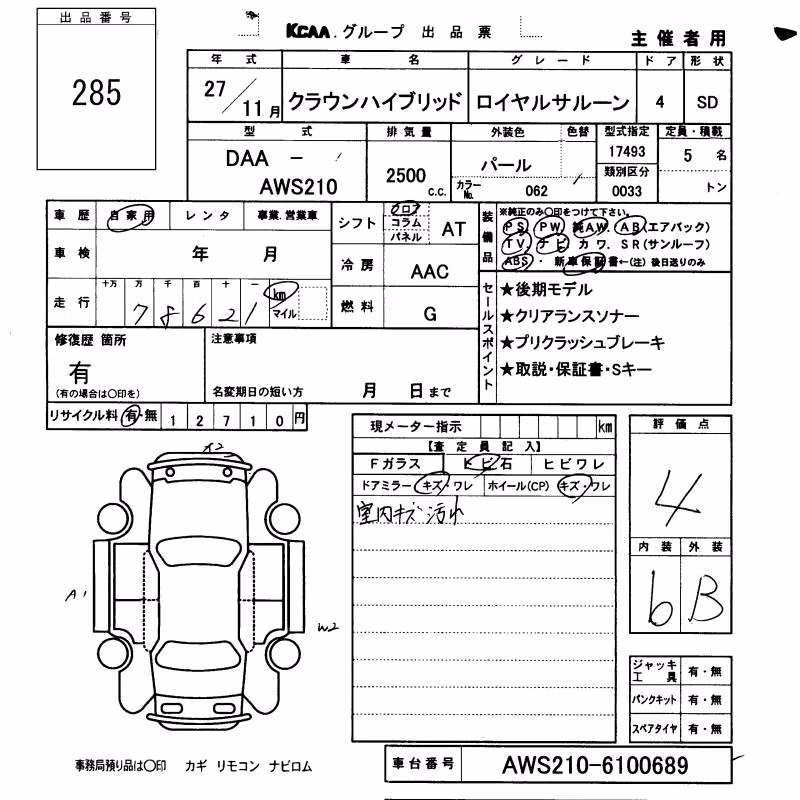 出品番号
285
KCAA.グループ 出品票
主催者用
年式 車名 グレード ドア 形状
27/11月 クラウンハイブリッド ロイヤルサルーン 4 SD
型式 排気量 外装色 色替 型式指定 定員・積載
DAA - AWS210
2500 c.c.
パール
カラーNo. 062
17493
類別区分
0033
5 名
トン
車歴 自家用 レンタ 事業.営業車
車検 年 月
走行 十万 万 千 百 十 一
78621 km マイル
シフト フロア コラム パネル AT
冷房 AAC
燃料 G
装備品
※純正のみ○印をつけて下さい。
PS. PW. 純AW. AB(エアバック)
TV. ナビ カワ. SR(サンルーフ)
ABS・ 新車保証書←(注)後日送りのみ
セールスポイント
★後期モデル
★クリアランスソナー
★プリクラッシュブレーキ
★取説・保証書・Sキー
修復歴 箇所
有
(有の場合は○印を)
注意事項
名変期日の短い方 月 日まで
リサイクル料 有・無 12710円
現メーター指示 km
【査定員記入】
Fガラス トビ石 ヒビワレ
ドアミラー キズ・ワレ ホイール(CP) キズ・ワレ
室内キズ汚れ
評価点
4
内装 外装
6 B
A1
W2
ジャッキ工具 有・無
パンクキット 有・無
スペアタイヤ 有・無
事務局預り品は○印 カギ リモコン ナビロム
車台番号 AWS210-6100689